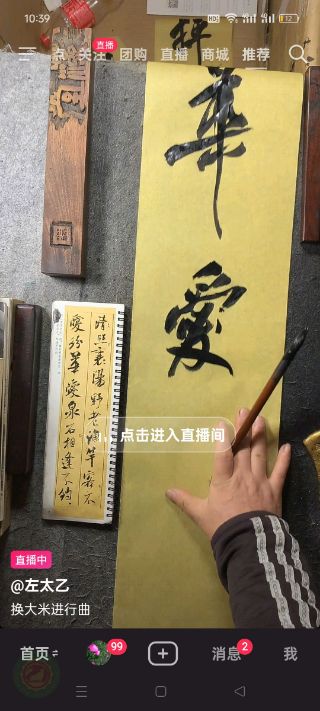 10:39
12
点 关注 直播 团购 直播 商城 推荐
華
愛
清照襄陽野老漁竿客不
愛紛華愛泉石相逢不
点击进入直播间
直播中
@左太乙
换大米进行曲
首页 99 消息 2 我